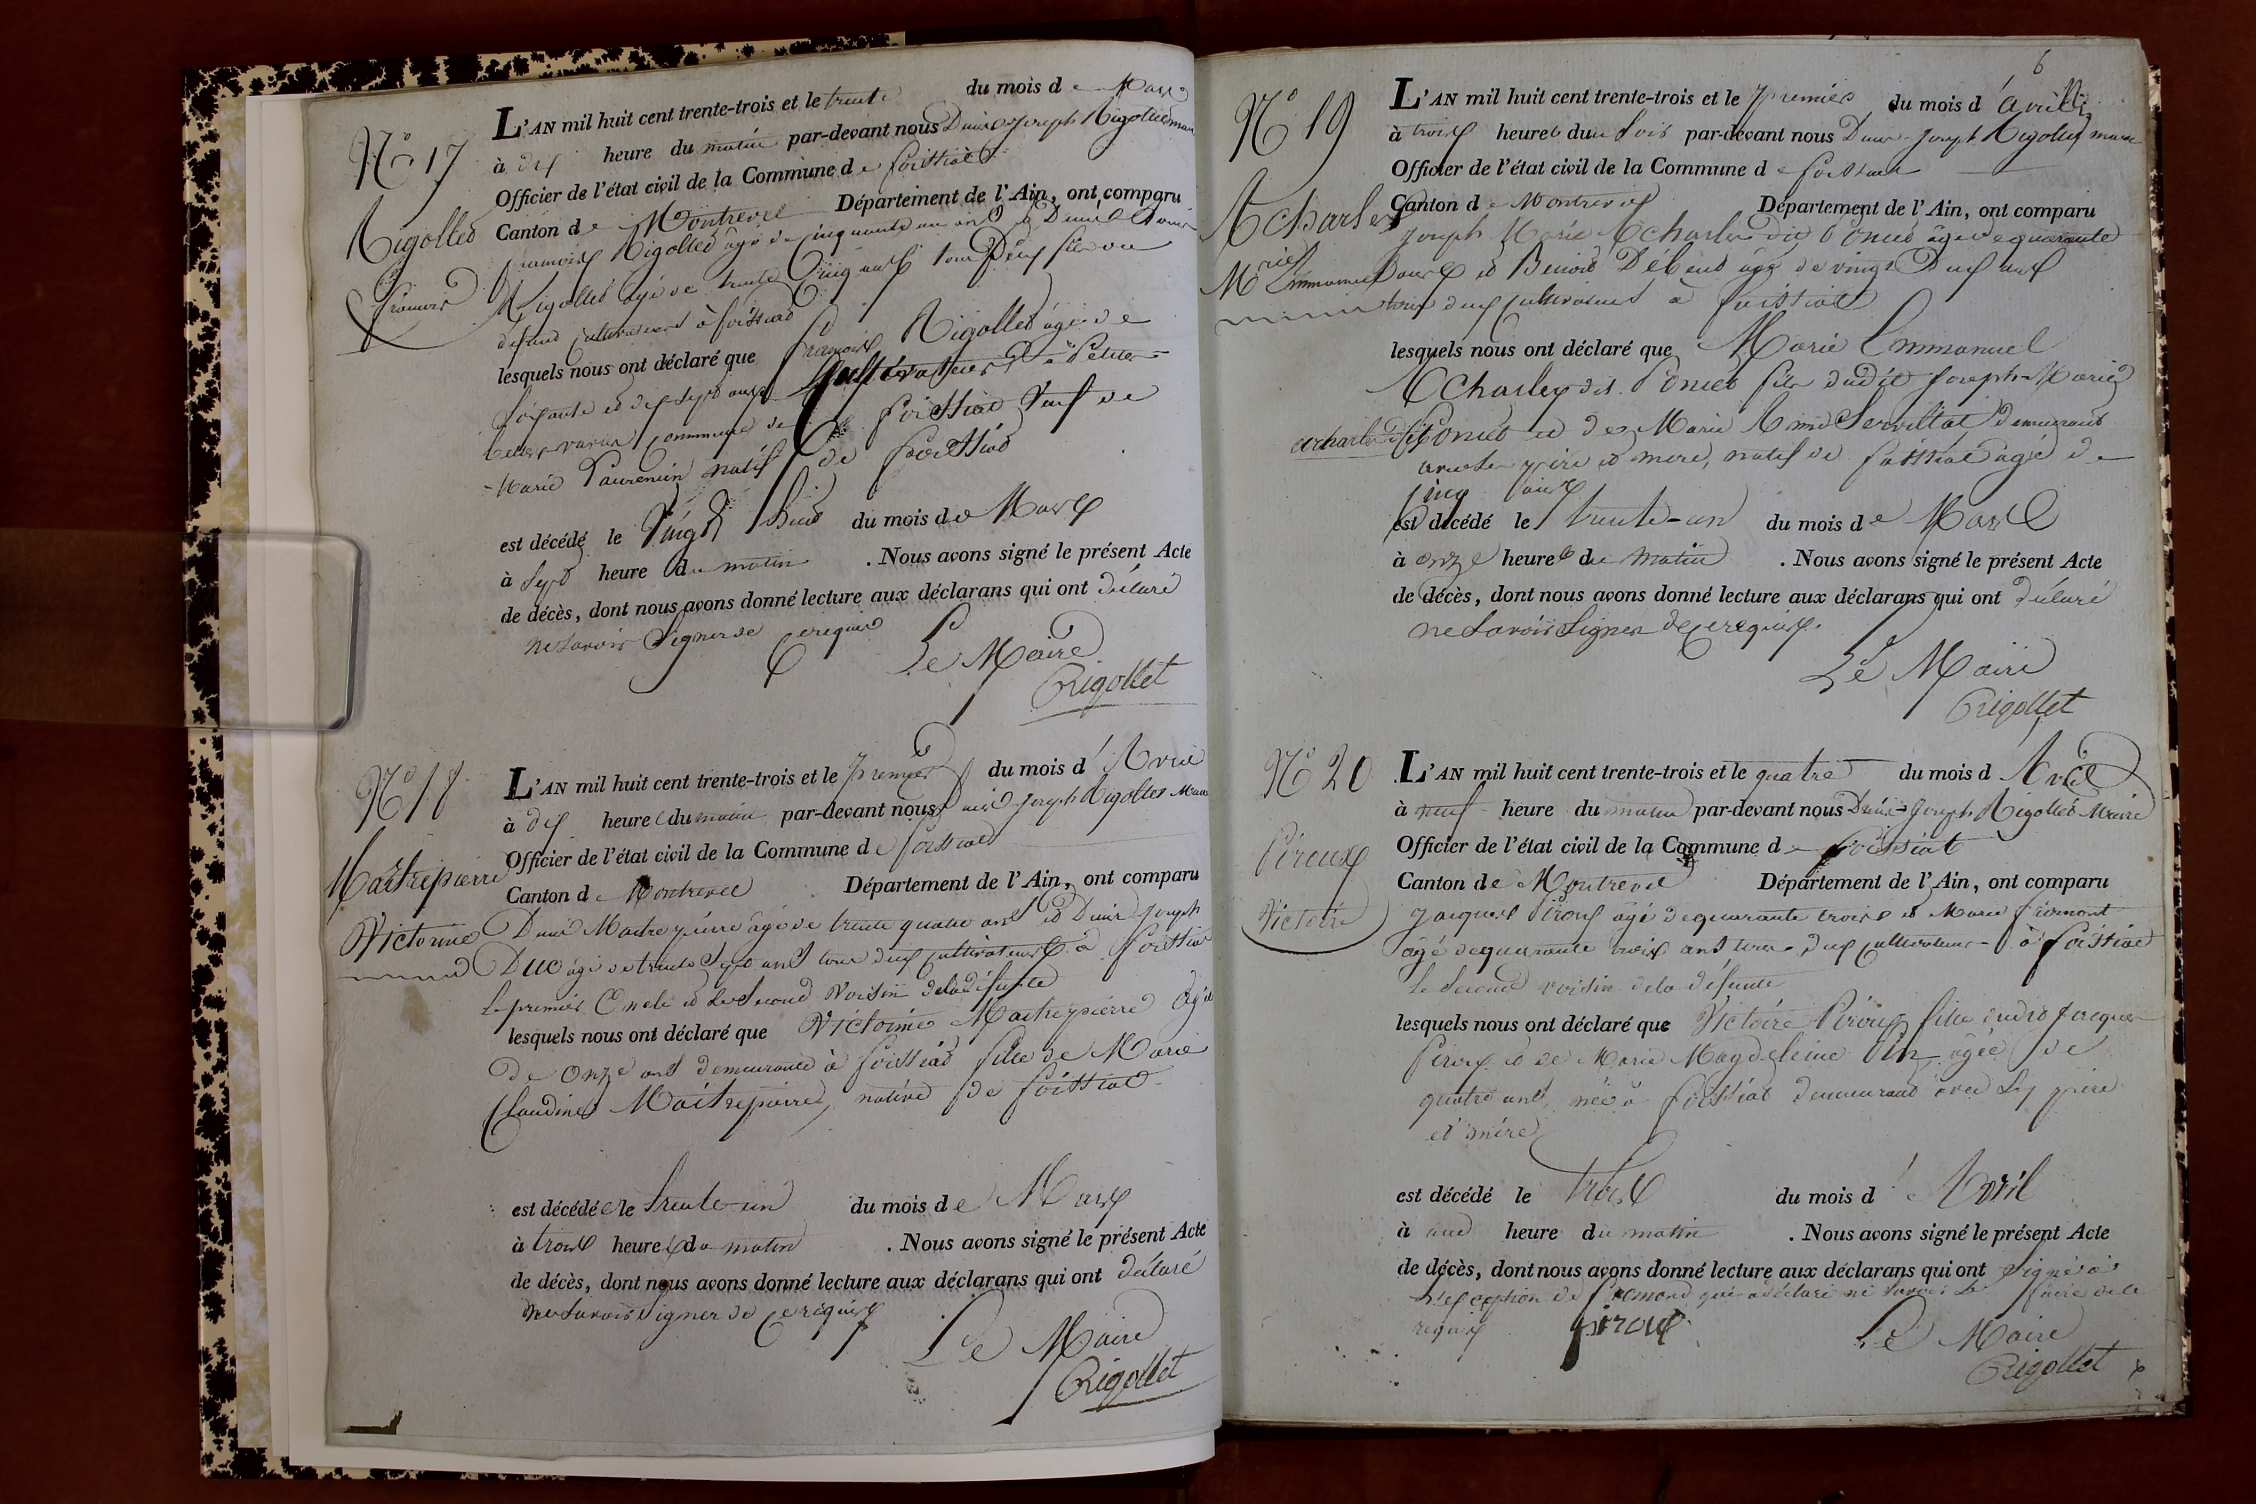 N° 17
Rigollet
François
L'AN mil huit cent trente-trois et le trente du mois de Mars
à dix heure du matin par-devant nous Denis Joseph Rigollet maire
Officier de l'état civil de la Commune de foissiat
Canton de Montrevel Département de l'Ain, ont comparu
françois Rigollet âgé de Cinquante un ans et Denis
Rigollet âgé de trente Cinq ans tous Deux
défunt cultivateurs à foissiat
lesquels nous ont déclaré que françois Rigollet âgé de
soixante et dix sept ans Cultivateur à
commune de foissiat veuf de
Marie natif de foissiat
est décédé le vingt huit du mois de Mars
à sept heure du matin . Nous avons signé le présent Acte
de décès, dont nous avons donné lecture aux déclarans qui ont déclaré
ne savoir Signer de ce requis
Le Maire
Rigollet
N° 18
Maitrepierre
Victorine
L'AN mil huit cent trente-trois et le premier du mois d'Avril
à dix heure du matin par-devant nous Denis Joseph Rigollet Maire
Officier de l'état civil de la Commune de foissiat
Canton de Montrevel Département de l'Ain, ont comparu
Denis Maitrepierre âgé de trente quatre ans et Denis Joseph
Duc âgé de trente sept ans tous deux cultivateurs à foissiat
Le premier Oncle et le Second Voisin de la défunte
lesquels nous ont déclaré que Victorine Maitrepierre Agée
de Onze ans demeurante à foissiat fille de Marie
Claudine Maitrepierre, native de foissiat
est décédée le trente-un du mois de Mars
à trois heure du matin . Nous avons signé le présent Acte
de décès, dont nous avons donné lecture aux déclarans qui ont déclaré
ne savoir Signer de ce requis
Le Maire
Rigollet
6
N° 19
Acharles
Marie
Emmanuel
L'AN mil huit cent trente-trois et le premier du mois d'Avril
à trois heures du Soir par-devant nous Denis Joseph Rigollet maire
Officier de l'état civil de la Commune de foissiat
Canton de Montrevel Département de l'Ain, ont comparu
Joseph Marie Acharles dit Poncet âgé de quarante
ans et Benoit âgé de vingt Deux ans
tous deux cultivateurs à foissiat
lesquels nous ont déclaré que Marie Emmanuel
Acharles dit Poncet fils dudit Joseph-Marie
acharles dit Poncet et de Marie Servillat demeurant
avec Ses père et mère, natif de foissiat âgé de
Cinq ans
est décédé le trente-un du mois de Mars
à onze heures du Matin . Nous avons signé le présent Acte
de décès, dont nous avons donné lecture aux déclarans qui ont déclaré
ne Savoir Signer de ce requis.
Le Maire
Rigollet
N° 20
Piroux
Victoire
L'AN mil huit cent trente-trois et le quatre du mois d'Avril
à neuf heure du matin par-devant nous Denis Joseph Rigollet Maire
Officier de l'état civil de la Commune de foissiat
Canton de Montrevel Département de l'Ain, ont comparu
Jacques Piroux âgé de quarante trois et Marie fromont
âgé de quarante trois ans tous deux cultivateurs à foissiat
Le Second voisin de la défunte
lesquels nous ont déclaré que Victoire Piroux fille dudit Jacques
Piroux et de Marie Magdeleine âgée de
quatre ans, née à foissiat demeurant avec Ses père
et mère
est décédé le trois du mois d'Avril
à une heure du matin . Nous avons signé le présent Acte
de décès, dont nous avons donné lecture aux déclarans qui ont Signé à
L'exception de fromond qui a déclaré ne Savoir le faire de ce
requis
piroux
Le Maire
Rigollet